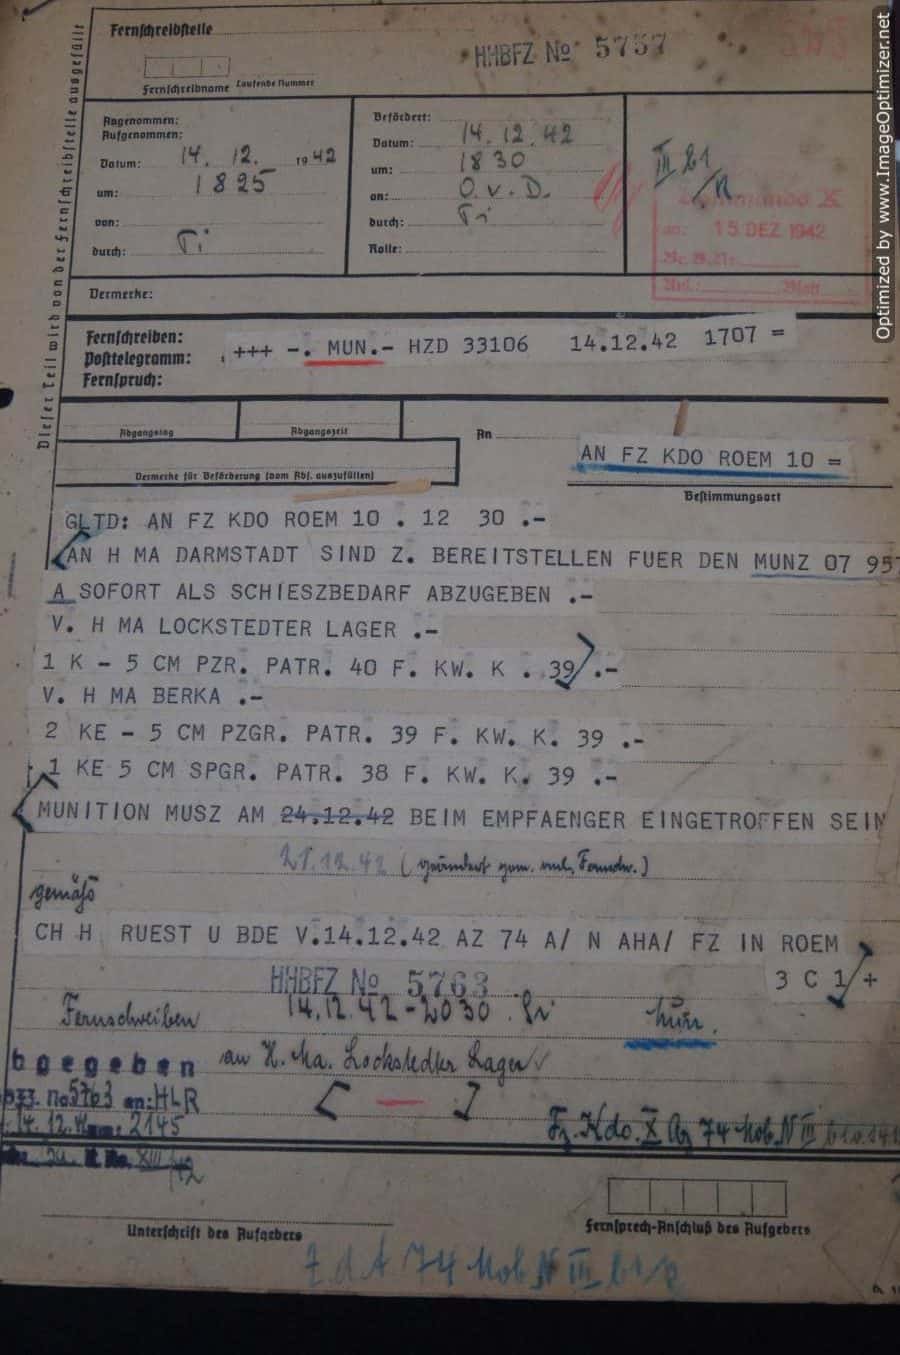 Fernschreibstelle
HHBFZ No 5757
Fernschreibname Laufende Nummer
Dieser Teil wird von der Fernschreibstelle ausgefüllt
Angenommen:
Aufgenommen:
Datum: 14. 12. 1942
um: 1825
von:
durch: Ti
Befördert:
Datum: 14. 12. 42
um: 1830
an: O. v. D.
durch: Ti
Rolle:
III b1
/R
Kommando X
an: 15 DEZ 1942
Vermerke:
Fernschreiben:
Posttelegramm:
Fernspruch:
+++ -. MUN.- HZD 33106 14.12.42 1707 =
Abgangstag
Abgangszeit
Vermerke für Beförderung (vom Abs. auszufüllen)
An
AN FZ KDO ROEM 10 =
Bestimmungsort
GLTD: AN FZ KDO ROEM 10 . 12 30 .-
AN H MA DARMSTADT SIND Z. BEREITSTELLEN FUER DEN MUNZ 07 957
A SOFORT ALS SCHIESZBEDARF ABZUGEBEN .-
V. H MA LOCKSTEDTER LAGER .-
1 K - 5 CM PZR. PATR. 40 F. KW. K . 39 .-
V. H MA BERKA .-
2 KE - 5 CM PZGR. PATR. 39 F. KW. K. 39 .-
1 KE 5 CM SPGR. PATR. 38 F. KW. K. 39 .-
MUNITION MUSZ AM 24.12.42 BEIM EMPFAENGER EINGETROFFEN SEIN
21.12.42 (geändert gem. Fernschr.)
gemäß
CH H RUEST U BDE V.14.12.42 AZ 74 A/ N AHA/ FZ IN ROEM
3 C 1/+
HHBFZ No 5763
Fernschreiben 14.12.42-2030
an H. Ma. Lockstedter Lager
bgegeben
No 5763 an: HLR
14. 12. um: 2145
[ — ]
Fz. Kdo. X Az 74 Mob. N III b1
Unterschrift des Aufgebers
Fernsprech-Anschluß des Aufgebers
Z d A 74 Mob N III b1/R
Optimized by www.ImageOptimizer.net